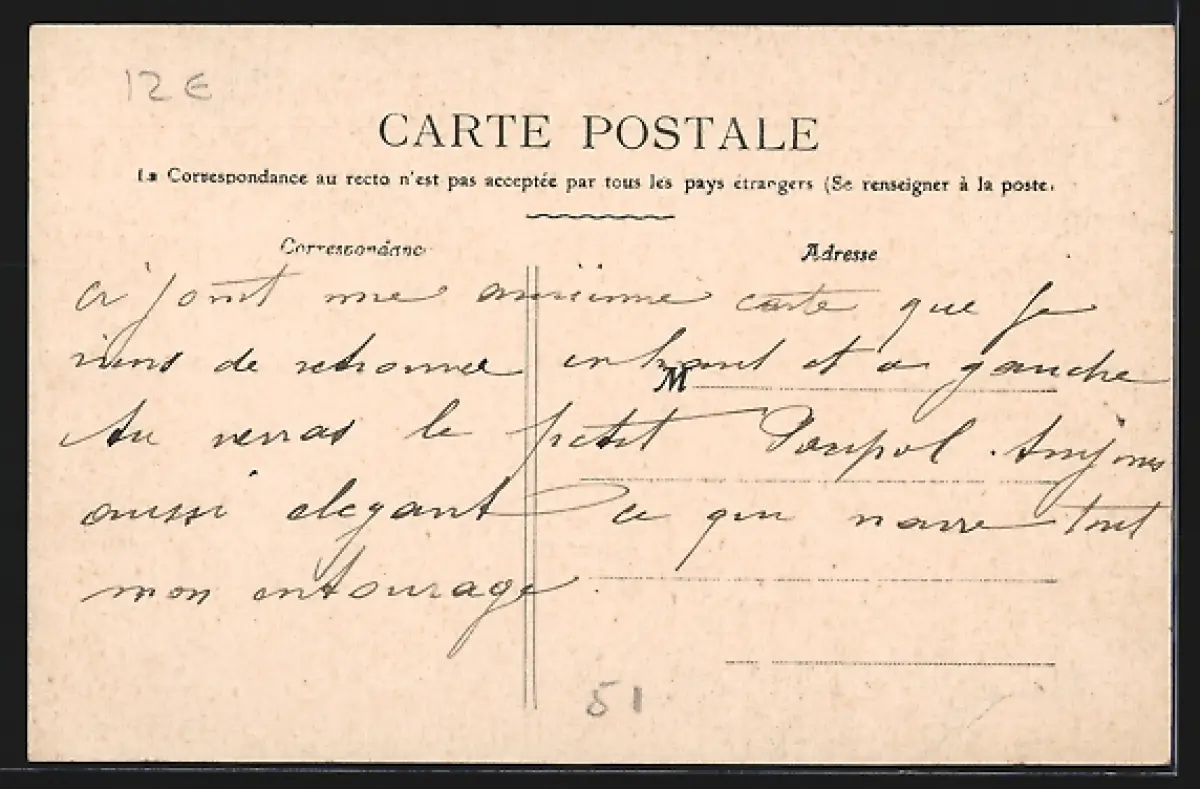 12 €
CARTE POSTALE
La Correspondance au recto n'est pas acceptée par tous les pays étrangers (Se renseigner à la poste,
Correspondance
Adresse
ci joint une ancienne carte que je
viens de retrouver en haut et a gauche
M
tu verras le petit Paupol. toujours
aussi elegant ce qui navre tout
mon entourage
51